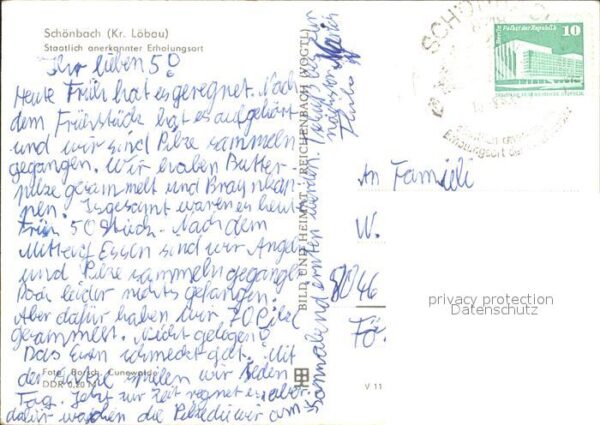 Schönbach (Kr. Löbau)
Staatlich anerkannter Erholungsort
Ihr lieben 5!
Heute Früh hat es geregnet. Nach
dem Frühstück hat es aufgehört
und wir sind Pilze sammeln
gegangen. Wir haben Butter-
pilze gesammelt und Braunkap-
pen. Insgesamt waren es heute
Früh 50 Stück. Nach dem
Mittag Essen sind wir Angeln
und Pilze sammeln gegangen.
Doch leider nichts gefangen.
Aber dafür haben wir 70 Pilze
gesammelt. Nicht gelogen!
Das Essen schmeckt gut. Mit
der spielen wir Jeden
Tag. Jetzt zur Zeit regnet es aber
dafür wachsen die Pilze die wir am
Sonnabend ernten werden.
Foto: Cunewalde
DDR 0,20 M
BILD UND HEIMAT REICHENBACH (VOGTL)
V 11
An Familie
W.
8046
Fö.
10
privacy protection
Datenschutz